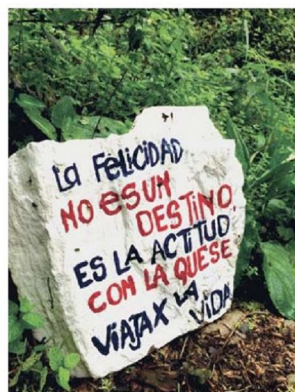 La FELICIDAD
NO eS UN
DESTINO,
ES LA ACTITUD
COM LA QUE SE
VIAJA X LA
VIDA